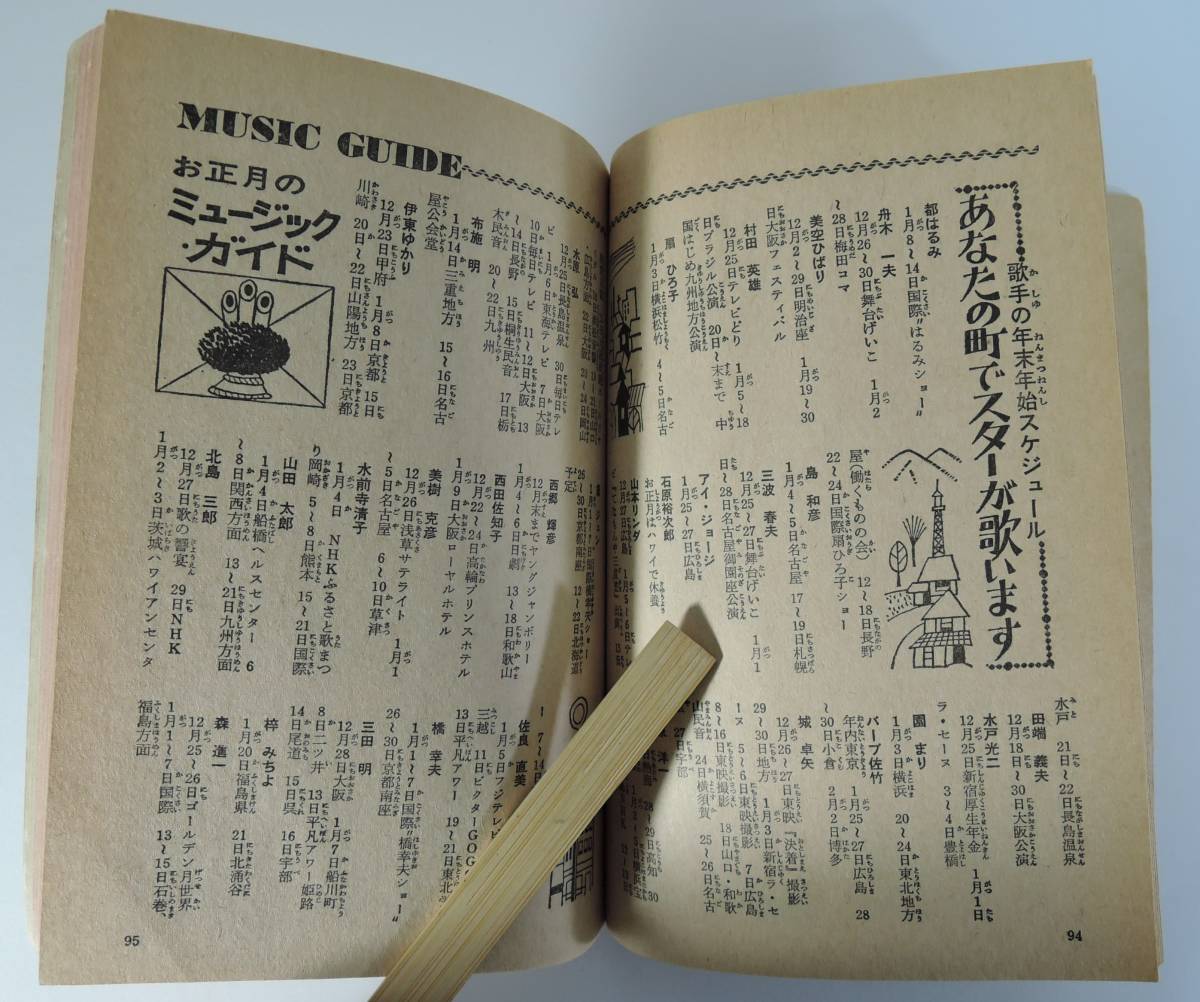 歌手の年末年始スケジュール
あなたの町でスターが歌います
都はるみ
1月8～14日国際"はるみショー"
舟木　一夫
12月26～30日舞台げいこ　1月2
～28日梅田コマ
美空ひばり
12月2～29日明治座　1月19～30
日大阪フェスティバル
村田　英雄
12月25日テレビどり　1月5～18
日ブラジル公演　20日～末まで　中
国はじめ九州地方公演
扇　ひろ子
1月3日横浜松竹　4～5日名古
屋（働くものの会）　12～18日長野
22～24日国際扇ひろ子ショー
島　和彦
1月4～5日名古屋　17～19日札幌
三波　春夫
12月25～27日舞台げいこ　1月1
～28日名古屋御園座公演
アイ・ジョージ
1月25～27日広島
石原裕次郎
お正月はハワイで休養
山本リンダ
12月27日広島　1月5～6日テレ
水戸　21日～22日長島温泉
田端　義夫
12月18日～30日大阪公演
水戸光二
12月25日新宿厚生年金　1月1日
ラ・セーヌ　3～4日豊橋
園　まり
1月3日横浜　20～24日東北地方
バーブ佐竹
年内東京　1月25～27日広島　28
～30日小倉　2月2日博多
城　卓矢
12月26～27日東映『決着』撮影
29～30日地方　1月3日新宿ラ・セ
ーヌ　5～6日東映撮影　7日広島
8～16日東映撮影　18日山口・和歌
山民音　24日横須賀　25～26日名古
27日宇部
94
MUSIC GUIDE
お正月の
ミュージック
・ガイド
水原　弘
12月25日長島温泉　30日毎日テレ
ビ　1月6日東海テレビ　7日大阪
10日毎日テレビ　11～12日大阪　13
～14日長野　15日桐生民音　17日栃
木民音　20～22日九州
布施　明
1月14日三重地方　15～16日名古
屋公会堂
伊東ゆかり
12月23日甲府　1月8日京都　15日
川崎　20日～22日山陽地方　23日京都
26～30日京都南座　12～22日北海道
予定
西郷　輝彦
12月末までヤングジャンボリー
1月4～6日日劇　13～18日和歌山
西田佐知子
12月22～24日高輪プリンスホテル
1月9日大阪　ローヤルホテル
美樹　克彦
12月26日浅草サテライト　1月1
～5日名古屋　6～10日草津
水前寺清子
1月4日　NHKふるさと歌まつ
り岡崎　5～8日熊本　15～21日国際
山田　太郎
1月4日船橋ヘルスセンター　6
～8日関西方面　13～21日九州方面
北島　三郎
12月27日歌の響宴　29日NHK
1月2～3日茨城ハワイアンセンタ
ー　7～14日
佐良　直美
1月5日フジテレビ
三越　11日ビクターGOGO
13日平凡アワー　19～21日東北
橋　幸夫
1月1～7日国際"橋幸夫ショー"
26～30日京都南座
三田　明
12月28日大阪　1月7日船川町
8日二ッ井　13日平凡アワー姫路
14日尾道　15日呉　16日宇部
梓　みちよ
1月20日福島県　21日北涌谷
森　進一
12月25～26日ゴールデン月世界
1月1～7日国際　13～15日石巻、
福島方面
95